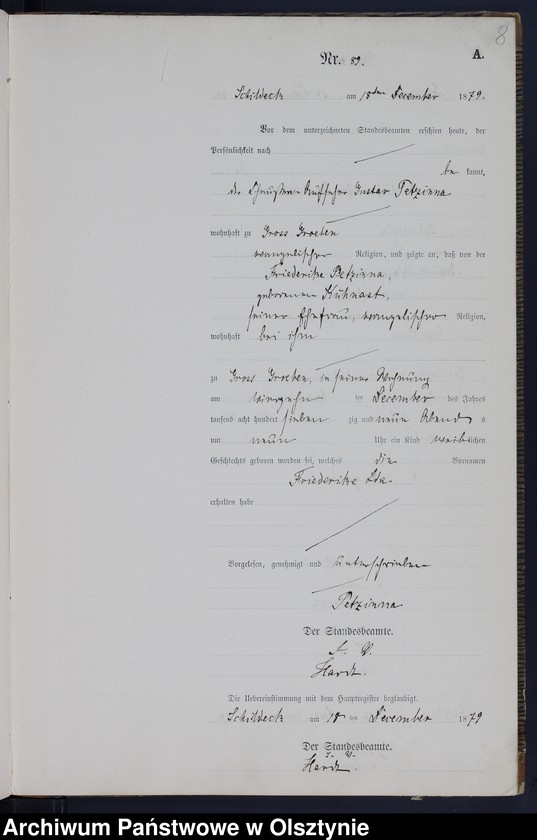 8
Nr. 89.
A.
Schildeck am 18ten December 1879.
Vor dem unterzeichneten Standesbeamten erschien heute, der
Persönlichkeit nach
be kannt,
der Chaussee-Aufseher Gustav Petzinna
wohnhaft zu Gross Groeben
evangelischer Religion, und zeigte an, daß von der
Friederike Petzinna,
geborenen Kühnast,
seiner Ehefrau, evangelischer Religion,
wohnhaft bei ihm
zu Gross Groeben, in seiner Wohnung
am vierzehn ten December des Jahres
tausend acht hundert sieben zig und neun Abend s
um neun Uhr ein Kind weib lichen
Geschlechts geboren worden sei, welches die Vornamen
Friederike Ida
erhalten habe
Vorgelesen, genehmigt und unterschrieben
Petzinna
Der Standesbeamte.
I. V.
Hardt.
Die Uebereinstimmung mit dem Hauptregister beglaubigt.
Schildeck am 18 ten December 1879
Der Standesbeamte.
I. V.
Hardt.
Archiwum Państwowe w Olsztynie